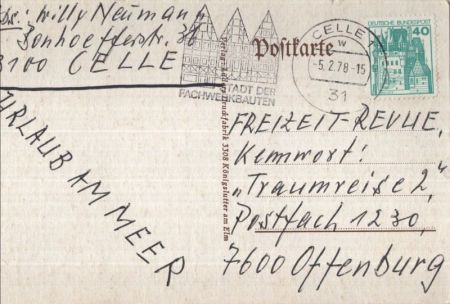 Abs.: Willy Neumann
Bonhoefferstr. 36
3100 CELLE
STADT DER
FACHWERKBAUTEN
Postkarte
CELLE
w
-5.2.78-15
31
DEUTSCHE BUNDESPOST
40
URLAUB AM MEER
3308 Königslutter am Elm
FREIZEIT-REVUE,
Kennwort:
„Traumreise 2,"
Postfach 1230,
7600 Offenburg